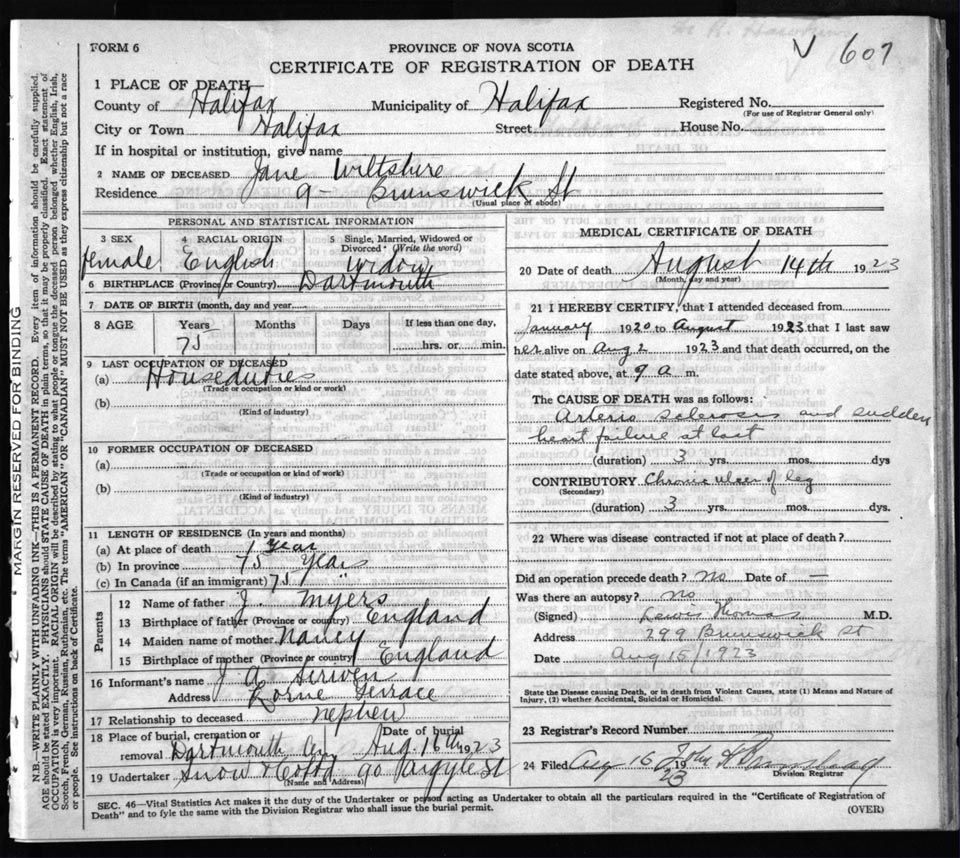 FORM 6
PROVINCE OF NOVA SCOTIA
607
CERTIFICATE OF REGISTRATION OF DEATH
1 PLACE OF DEATH
County of Halifax Municipality of Halifax Registered No.
(For use of Registrar General only)
City or Town Halifax Street House No.
If in hospital or institution, give name
2 NAME OF DECEASED Jane Wiltshire
Residence 9 - Brunswick St
(Usual place of abode)
PERSONAL AND STATISTICAL INFORMATION
3 SEX
female
4 RACIAL ORIGIN
English
5 Single, Married, Widowed or Divorced (Write the word)
Widow
6 BIRTHPLACE (Province or Country) Dartmouth
7 DATE OF BIRTH (month, day and year
8 AGE Years Months Days If less than one day,
75 hrs. or min.
9 LAST OCCUPATION OF DECEASED
(a) Houseduties
(Trade or occupation or kind of work)
(b)
(Kind of industry)
10 FORMER OCCUPATION OF DECEASED
(a)
(Trade or occupation or kind of work)
(b)
(Kind of industry)
11 LENGTH OF RESIDENCE (In years and months)
(a) At place of death 1 Year
(b) In province 75 Years
(c) In Canada (if an immigrant) 75 "
Parents
12 Name of father J. Myers
13 Birthplace of father (Province or country) England
14 Maiden name of mother Nancy
15 Birthplace of mother (Province or country England
16 Informant's name J A
Address Lorne Terrace
17 Relationship to deceased nephew
18 Place of burial, cremation or removal Dartmouth Date of burial Aug. 16th 1923
19 Undertaker Snow & 90 Argyle St
(Name and Address)
MEDICAL CERTIFICATE OF DEATH
20 Date of death August 14th 1923
(Month, day and year)
21 I HEREBY CERTIFY, that I attended deceased from
January 1920 to August 1923 that I last saw
her alive on Aug 2 1923 and that death occurred, on the
date stated above, at 9 a m.
The CAUSE OF DEATH was as follows:
Arterio sclerosis and sudden
heart failure at last
(duration) 3 yrs. mos. dys
CONTRIBUTORY Chronic ulcer of leg
(Secondary)
(duration) 3 yrs. mos. dys.
22 Where was disease contracted if not at place of death?
Did an operation precede death? No Date of —
Was there an autopsy? No
(Signed) Lewis Thomas M.D.
Address 299 Brunswick St
Date Aug 15/1923
State the Disease causing Death, or in death from Violent Causes, state (1) Means and Nature of
Injury, (2) whether Accidental, Suicidal or Homicidal.
23 Registrar's Record Number
24 Filed Aug 16 1923 John
Division Registrar
SEC. 46—Vital Statistics Act makes it the duty of the Undertaker or person acting as Undertaker to obtain all the particulars required in the "Certificate of Registration of
Death" and to fyle the same with the Division Registrar who shall issue the burial permit.
(OVER)
MARGIN RESERVED FOR BINDING
N.B.—WRITE PLAINLY WITH UNFADING INK—THIS IS A PERMANENT RECORD. Every item of information should be carefully supplied.
AGE should be stated EXACTLY. PHYSICIANS should STATE CAUSE OF DEATH in plain terms, so that it may be properly classified. Exact statement of
OCCUPATION is very important. RACIAL ORIGIN will be described by stating to what people or tongue the deceased person belonged whether English, Irish,
Scotch, French, German, Russian, Ruthenian, etc. The terms "AMERICAN" OR "CANADIAN" MUST NOT BE USED as they express citizenship but not a race
or people. See instructions on back of Certificate.